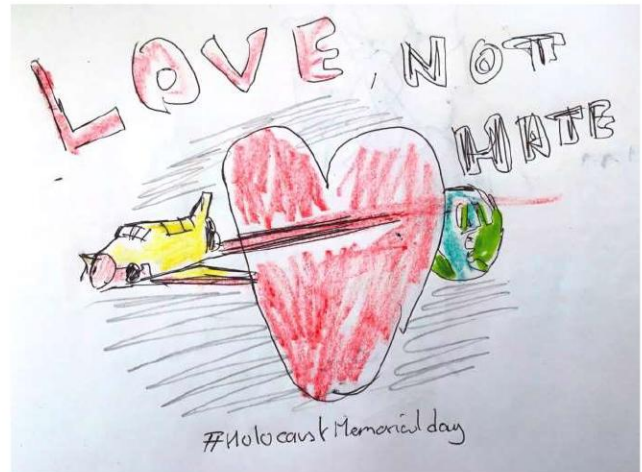 LOVE, NOT
HATE
#HolocaustMemorialday